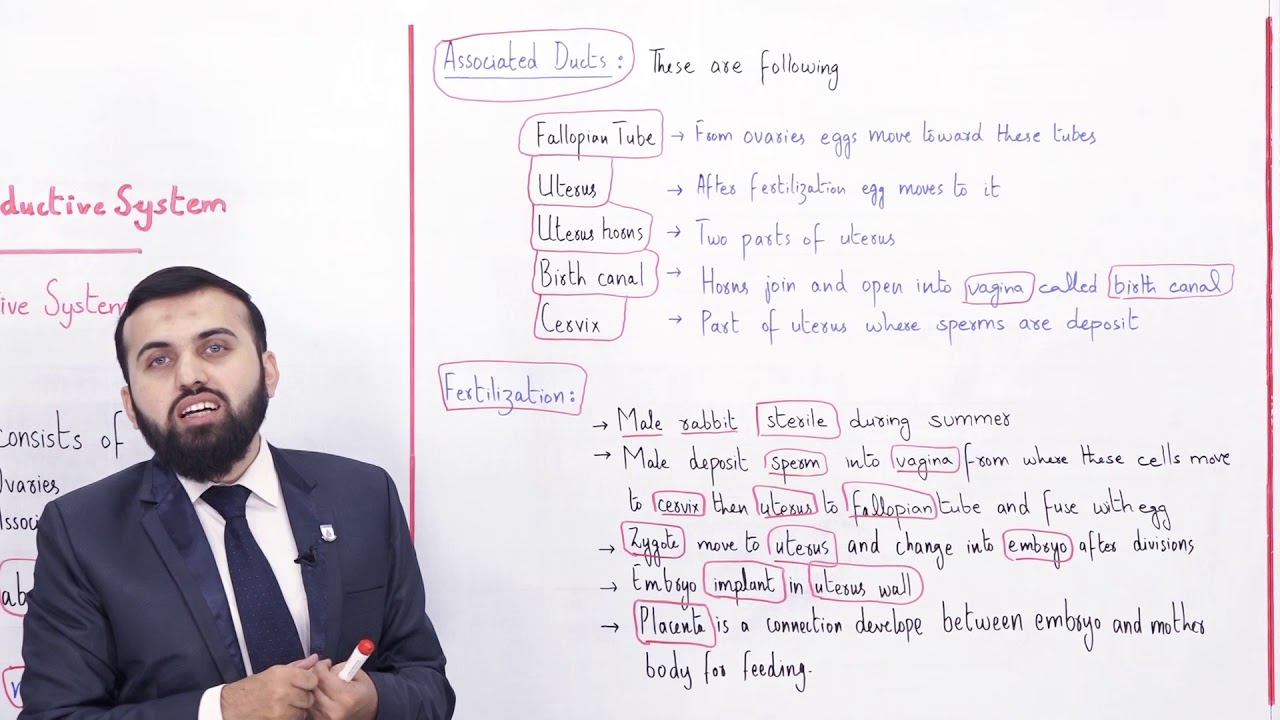 ductive System
ive System
consists of
Ovaries
Associ
ab
Associated Ducts : These are following
Fallopian Tube → From ovaries eggs move toward these tubes
Uterus → After fertilization egg moves to it
Uterus horns → Two parts of uterus
Birth canal → Horns join and open into vagina called birth canal
Cervix → Part of uterus where sperms are deposit
Fertilization :
→ Male rabbit sterile during summer
→ Male deposit sperm into vagina from where these cells move
to cervix then uterus to fallopian tube and fuse with egg
→ Zygote move to uterus and change into embryo after divisions
→ Embryo implant in uterus wall
→ Placenta is a connection develope between embryo and mother
body for feeding.